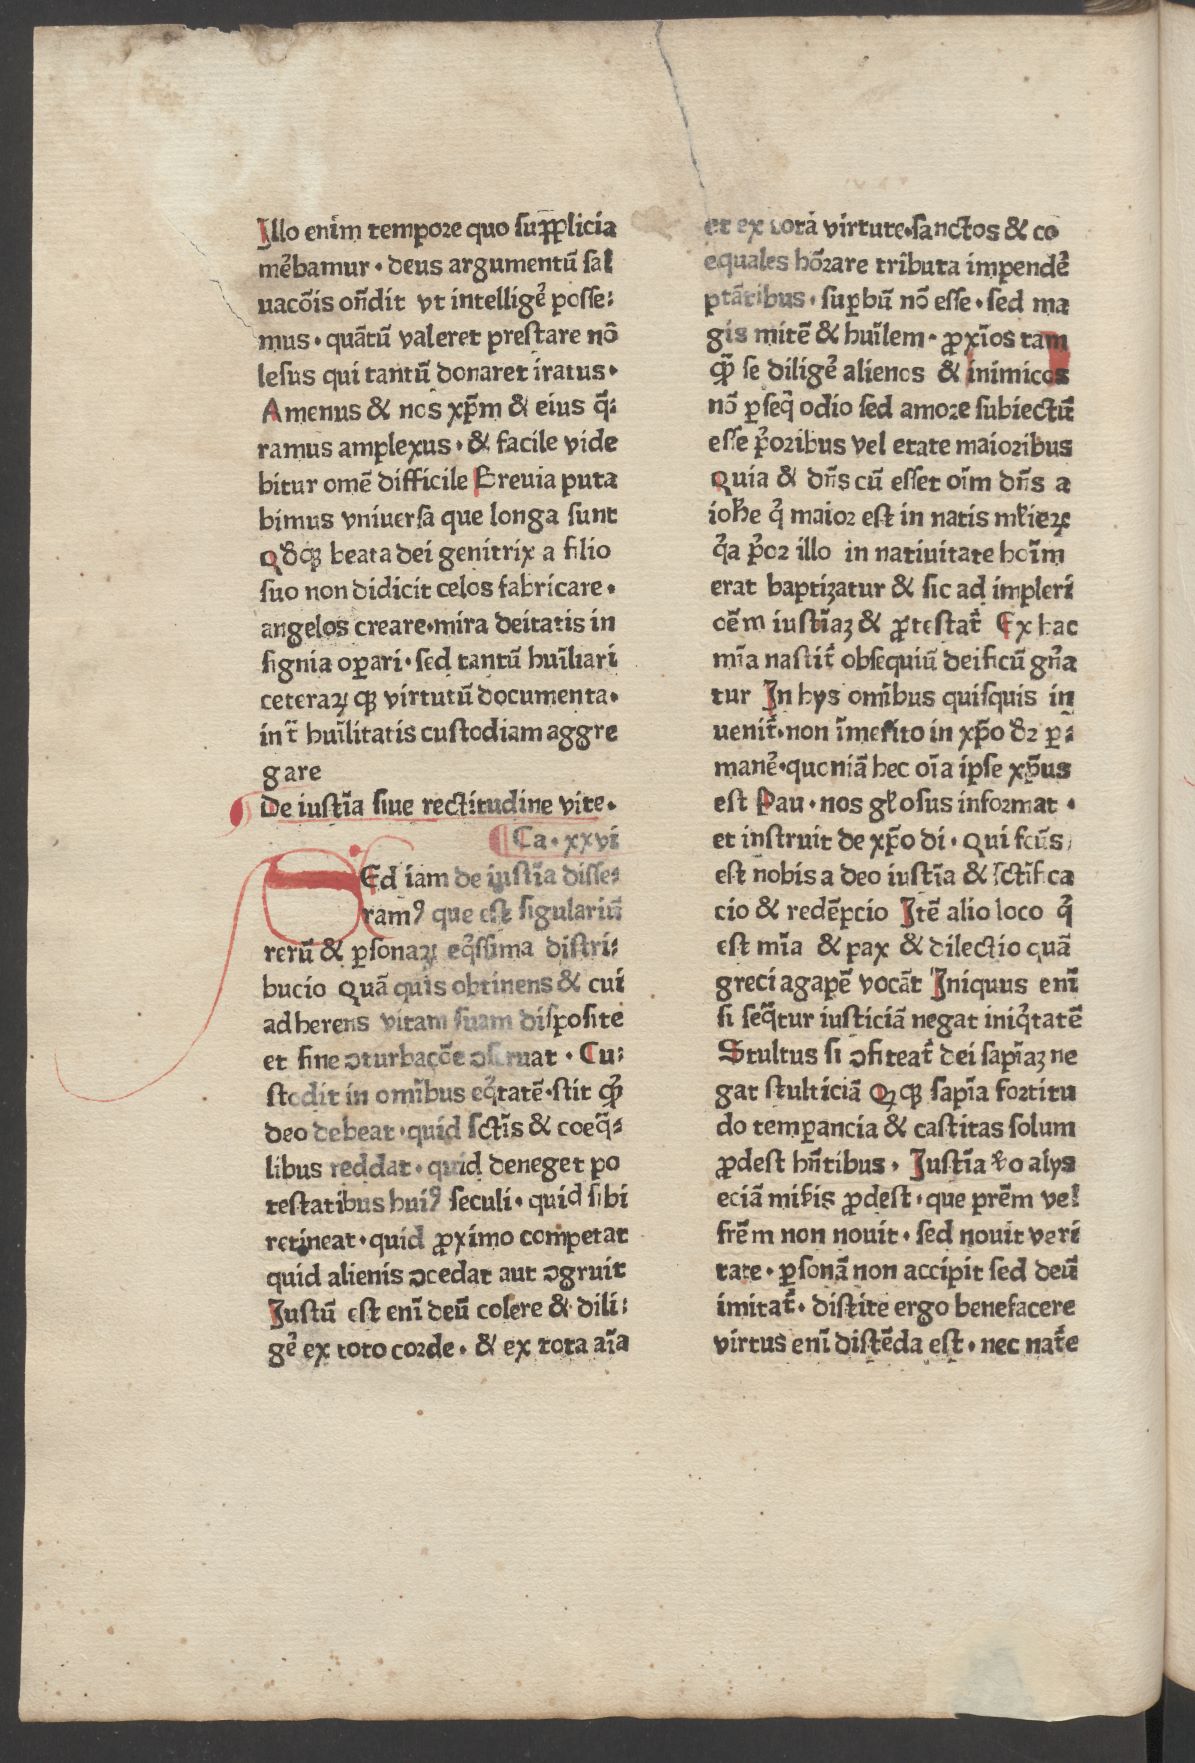 Illo enim tempore quo supplicia
mēbamur · deus argumentū sal
uacōis on̄dit vt intelligē posse:
mus · quātū valeret prestare nō
lesus qui tantū donaret iratus ·
Amenus & nos xp̄m & eius q̄:
ramus amplexus · & facile vide
bitur omē difficile Breuia puta
bimus vniuersa que longa sunt
Qđqꝫ beata dei genitrix a filio
suo non didicit celos fabricare ·
angelos creare · mira deitatis in
signia oꝑari · sed tantū huīliari
ceteraꝝ qꝫ virtutū documenta ·
int̄ huīlitatis custodiam aggre
gare
De iustīa siue rectitudine vite ·
Ca · xxvi
SEd iam de iustīa disse:
ramꝰ que est sīgulariū
rerū & ꝑsonaꝝ eq̄ssima distri:
bucio Quā quis obtinens & cui
adherens vitam suam disposite
et sine ɔturbacōe ɔseruat · Cu:
stodit in omībus eq̄tatē · scit qđ
deo debeat · quid sc̄tis & coeq̄:
libus reddat · quid deneget po
testatibus huiꝰ seculi · quid sibi
retineat · quid ꝓximo competat
quid alienis ɔcedat aut ɔgruit
Justū est enī deū colere & dili:
gē ex toto corde · & ex tota aīa
et ex tota virtute · sanctos & co
equales hōrare tributa impendē
ptātibus · suꝑbū nō esse · sed ma
gis mitē & huīlem · ꝓxīos tam
qꝫ se diligē alienos & inimicos
nō ꝑseq̄ odio sed amore subiectū
esse p̄oribus vel etate maioribus
Quia & dn̄s cū esset oīm dn̄s a
ioħe q̄ maior est in natis ml̄ieꝝ
q̄a p̄or illo in natiuitate hoīm
erat baptizatur & sic ad impleri
oēm iustīaꝫ & ꝓtestat̄ Ex hac
mīa nascit̄ obsequiū deificū gn̄a
tur In hys omībus quisquis in
uenit̄ · non īmerito in xp̄o dr̄ ꝑ:
manē · quoniā hec oīa ipse xp̄us
est Pau · nos gl̄osus informat ·
et instruit de xp̄o di · Qui fcūs
est nobis a deo iustīa & sc̄tifica
cio & redēpcio Itē alio loco q̄
est mīa & pax & dilectio quā
greci agapē vocāt Iniquus enī
si seq̄tur iusticiā negat iniq̄tatē
Stultus si ɔfiteat̄ dei sapīaꝫ ne
gat stulticiā Qꝫ sapīa fortitu
do temꝑancia & castitas solum
ꝓdest hn̄tibus · Justīa ꝟo alys
eciā mīsis ꝓdest · que prēm vel
frēm non nouit · sed nouit veri
tatē · ꝑsonā non accipit sed deū
imitat̄ · discite ergo benefacere
virtus enī discēda est · nec nat̄e